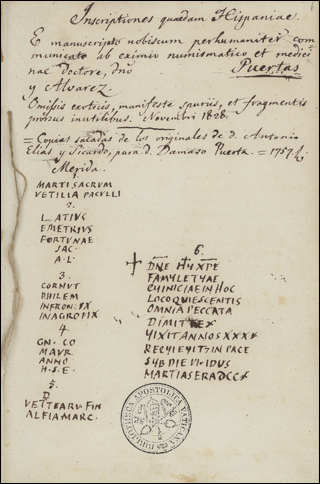 Inscriptiones quaedam Hispaniae.
E manuscripto nobiscum perhumaniter com
municato ab eximio numismatico et medici
nae doctore, dno Puertas
y Alvarez.
Omissis exoticis, manifeste spuriis, et fragmentis
prorsus inutilibus. Novembri 1828.
= Copias sacadas de los originales de d. Antonio
Elias y Picardo, para d. Damaso Puerta. = 1757.
Merida.
1.
MARTI SACRUM
VETILIA PACULLI
2.
L. ATIUS
EMETRIUS
FORTUNAE
SAC.
A. L.
3.
CORNUT
PHILEM
IN FRON. PX
IN AGRO PIX
4.
GN. CO
MAUR
ANNO
H. S. E.
5.
D
VETTEARU. FIN
ALFIA MARC.
6.
FAMYLETYAE
LOCO QUIESCENTIS
OMNIA PECCATA
DIMITTE
YIXIT ANNOS XXXX
BIBLIOTHECA APOSTOLICA VATICANA